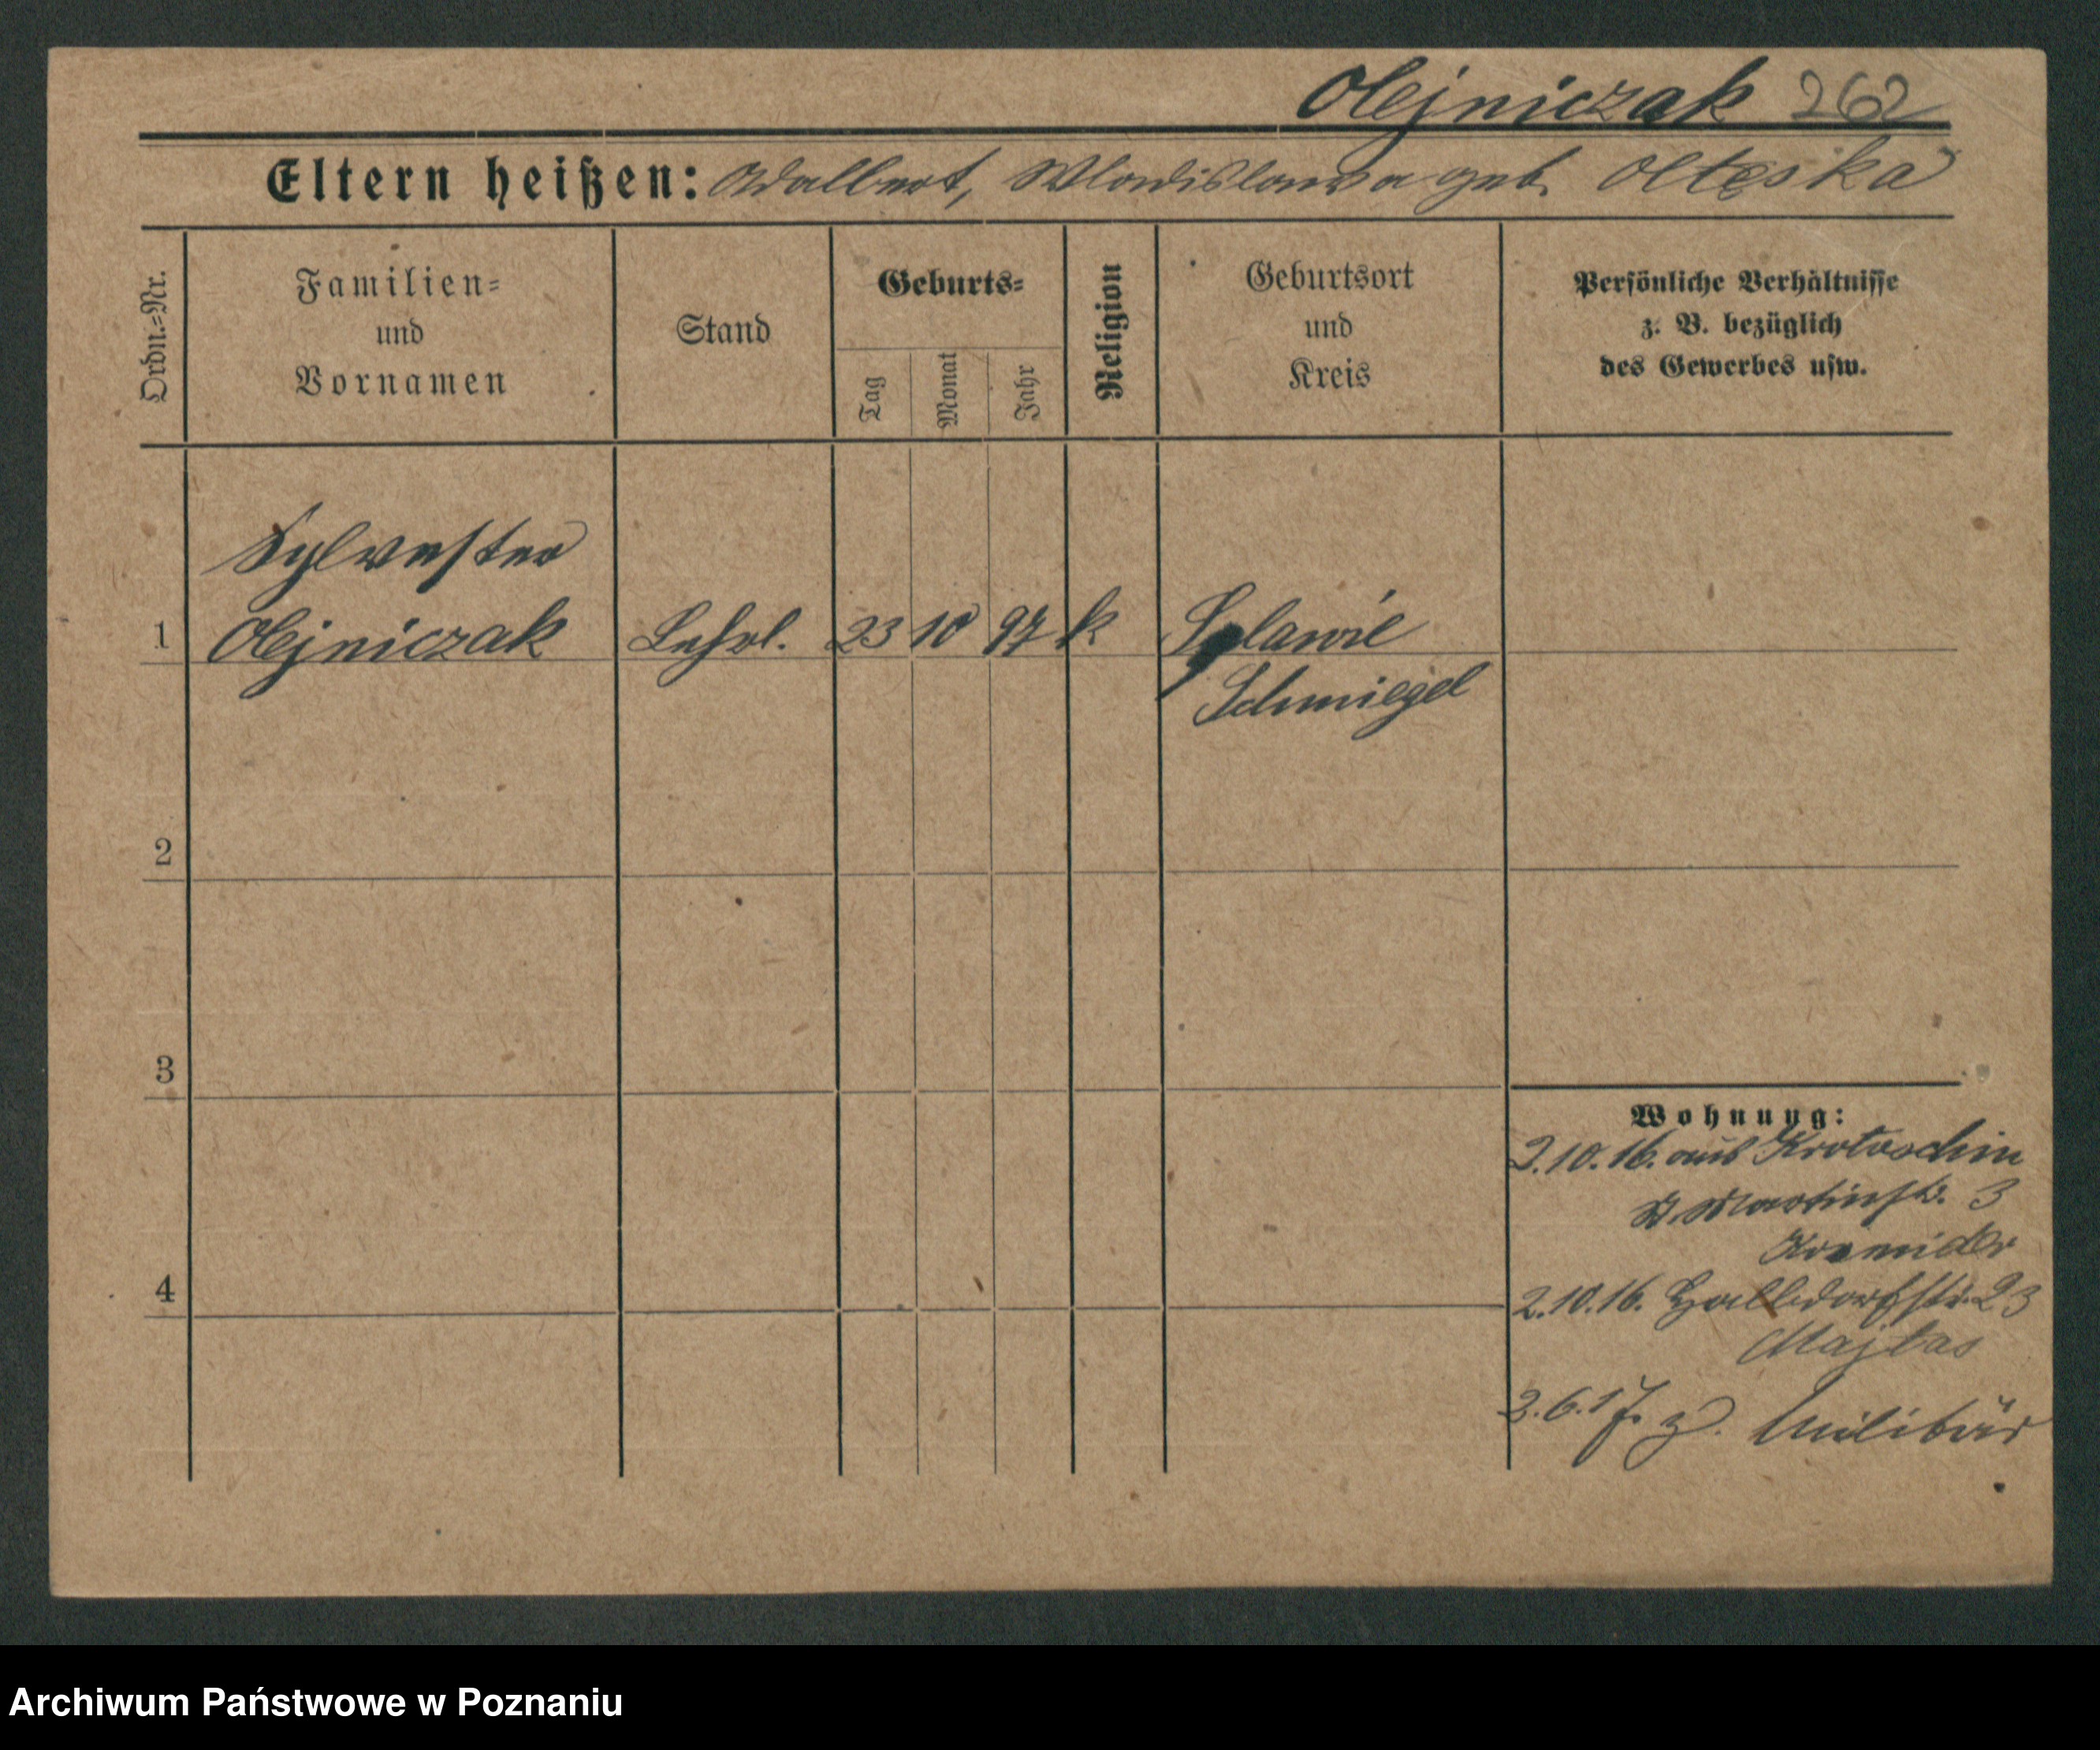 Olejniczak 262
Eltern heißen: Adalbert, Wladislawa geb. Olteska
Ordn.=Nr.
Familien=
und
Vornamen
Stand
Geburts=
Tag
Monat
Jahr
Religion
Geburtsort
und
Kreis
Persönliche Verhältnisse
z. B. bezüglich
des Gewerbes usw.
Sylvester
1 Olejniczak Lehrl. 23 10 97 k
Schmiegel
2
3
Wohnung:
2.10.16. aus Krotoschin
St. Martinstr. 3
4
2.10.16. Halbdorfstr. 23
Majtas
2.6.17. z. Militär
Archiwum Państwowe w Poznaniu